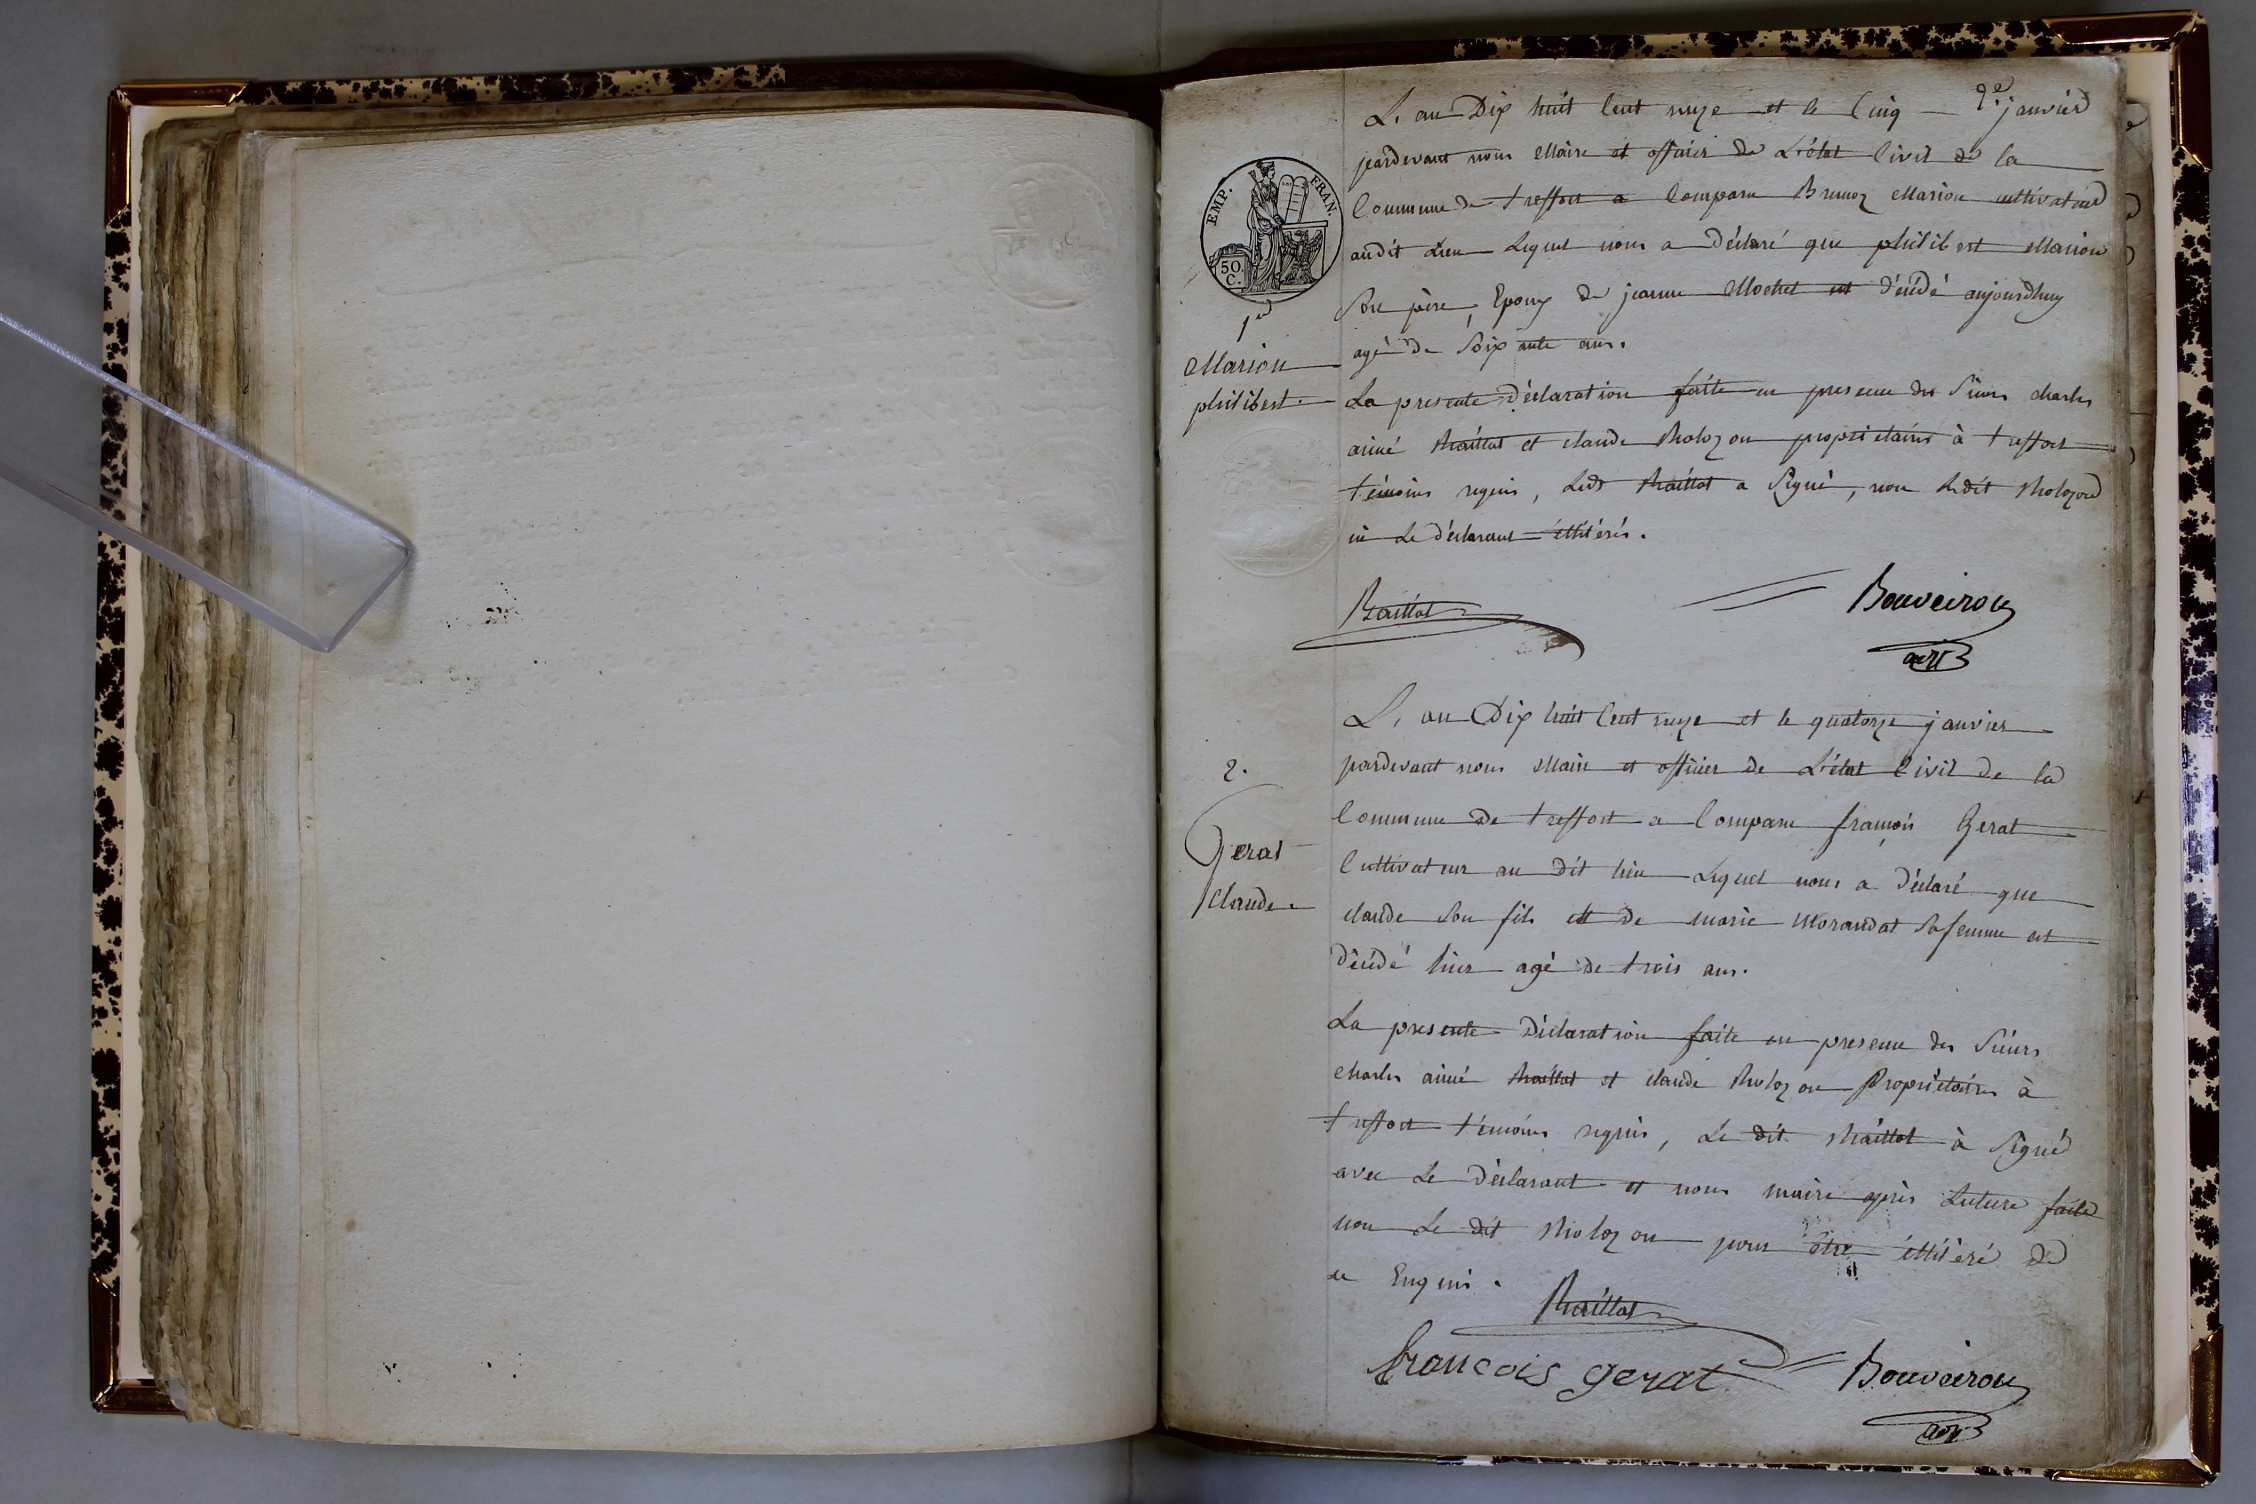 L'an Dix huit Cent onze et le Cinq janvier
pardevant nous Maire et officier de L'état Civil de la
Commune de treffort a Comparu Marion cultivateur
audit Lieu Lequel nous a Déclaré que philibert Marion
Son père, Epoux de jeanne Mochet est décédé aujourdhuy
agé de Soixante ans.
La presente Déclaration faite en presence des Sieurs charles
aimé Raillat et claude Rolozon proprietaires à treffort
témoins requis, Ledt Raillat a Signé, non Ledit Rolozon
ni Le déclarant illitérés.
Raillat
Bouveiron
EMP. FRAN.
50.
C.
1er
Marion
philibert
L'an Dix huit Cent onze et le quatorze janvier
pardevant nous Maire et officier de L'état Civil de la
Commune de treffort a Comparu françois Gerat
Cultivateur au dit lieu Lequel nous a Déclaré que
claude Son fils et de marie Morandat Sa femme est
décédé hier agé de trois ans.
La presente Déclaration faite en presence des Sieurs
charles aimé Raillat et claude Rolozon Propriétaires à
treffort témoins requis, Le dit Raillat à Signé
avec Le Déclarant et nous maire après Lecture faite
non Le dit Rolozon pour être illitéré de
ce Enquis.
Raillat
francois gerat
Bouveiron
2.
Gerat
Claude.